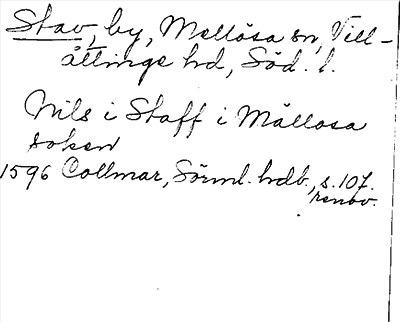 Stav, by, Mellösa sn, Vill-
åttinge hd, Söd. l.
Nils i Staff i Mällosa
soken
1596 Collmar, Sörml. hdb., s. 107.
renov.